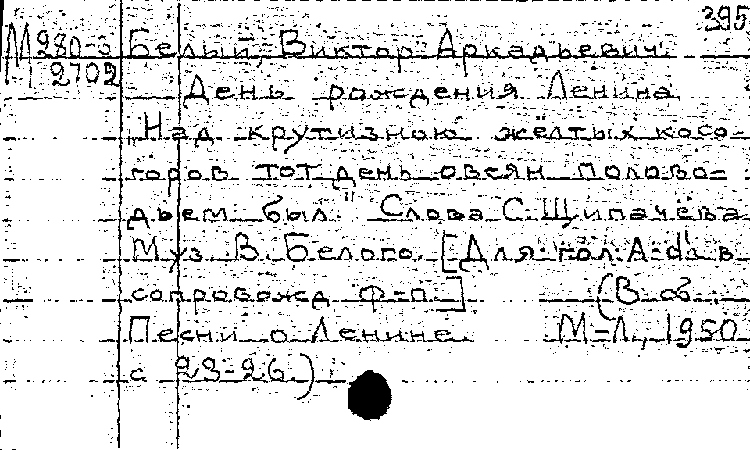 395
М 280-3 Белый, Виктор Аркадьевич.
М 2702 День рождения Ленина
„Над крутизною жёлтых косо-
горов тот день овеян полово-
дьем был" Слова С. Щипачёва
Муз. В. Белого. [Для гол. A-d₂ в
сопровожд. ф-п.] (В сб.:
Песни о Ленине. М-Л., 1950
с 23-26.)